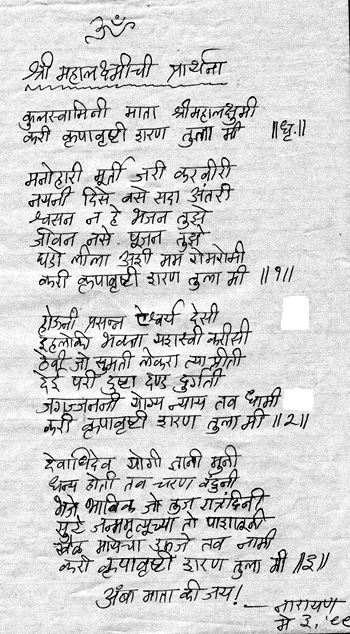 ॐ
श्री महालक्ष्मीची प्रार्थना
कुलस्वामिनी माता श्रीमहालक्ष्मी
करी कृपावृष्टी शरण तुला मी ॥धृ.॥
मनोहारी मूर्ती जरी करवीरी
नयनी दिसे वसे सदा अंतरी
श्वसन न हे भजन तुझे
जीवन नसे पूजन तुझे
घडो लीला अशी मम रोमरोमी
करी कृपावृष्टी शरण तुला मी ॥१॥
होऊनी प्रसन्न ऐश्वर्य देसी
इहलोकी भक्ता यशस्वी करीसी
ठेवी जो सुमती लेकरा त्या प्रीती
देई परी दुष्टा दण्ड दुर्गती
जगज्जननी योग्य न्याय तव धामी
करी कृपावृष्टी शरण तुला मी ॥२॥
देवाधिदेव योगी ज्ञानी मुनी
धन्य होती तव चरण वंदुनी
भजे भाविक जो तुज रात्रंदिनी
सुटे जन्ममृत्यूच्या तो पाशातूनी
खेळ मायेचा उमजे तव नामी
करी कृपावृष्टी शरण तुला मी ॥३॥
अंबा माता की जय!
— नारायण
मे ३, '९९